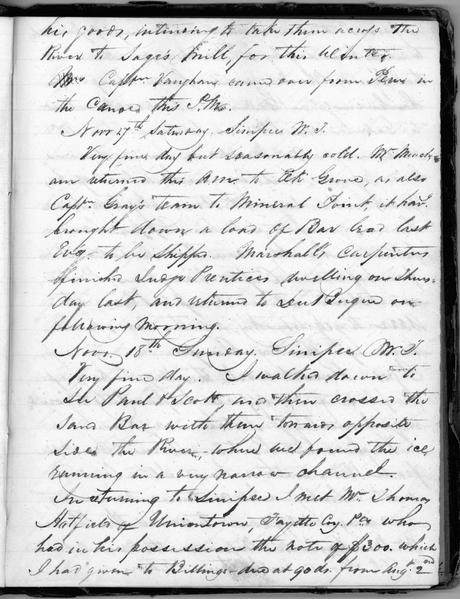 his goods, intending to take them across the
River to Sage's Mill, for this Winter.
Mrs Captn Vaughan came over from Peru in
the Canoe this P.M.
Novr 17th Saturday, Sinipee W.T.
Very fine day but seasonably cold. Mr
am returned this A.M. to Elk Grove, as also
Captn Gray's team to Mineral Point, it hav-
brought down a load of Bar Lead last
Evg. to be shipped. Marshall's Carpenters
finished Judge Prentices, dwelling on Thurs-
day last, and returned to Du Buque on
following morning.
Novr 18th Sunday, Sinipee W.T.
Very fine day. I walked down to
Paul & Scott and then crossed the
Sand Bar with them towards opposite
side the River, where we found the ice
running in a very narrow channel.
In returning to Sinipee I met Mr Thomas
Hatfield of Uniontown, Fayette Coy. Pa. who
had in his possession the note of $300. which
I had given to Billings due at 90ds. from Augt 2nd